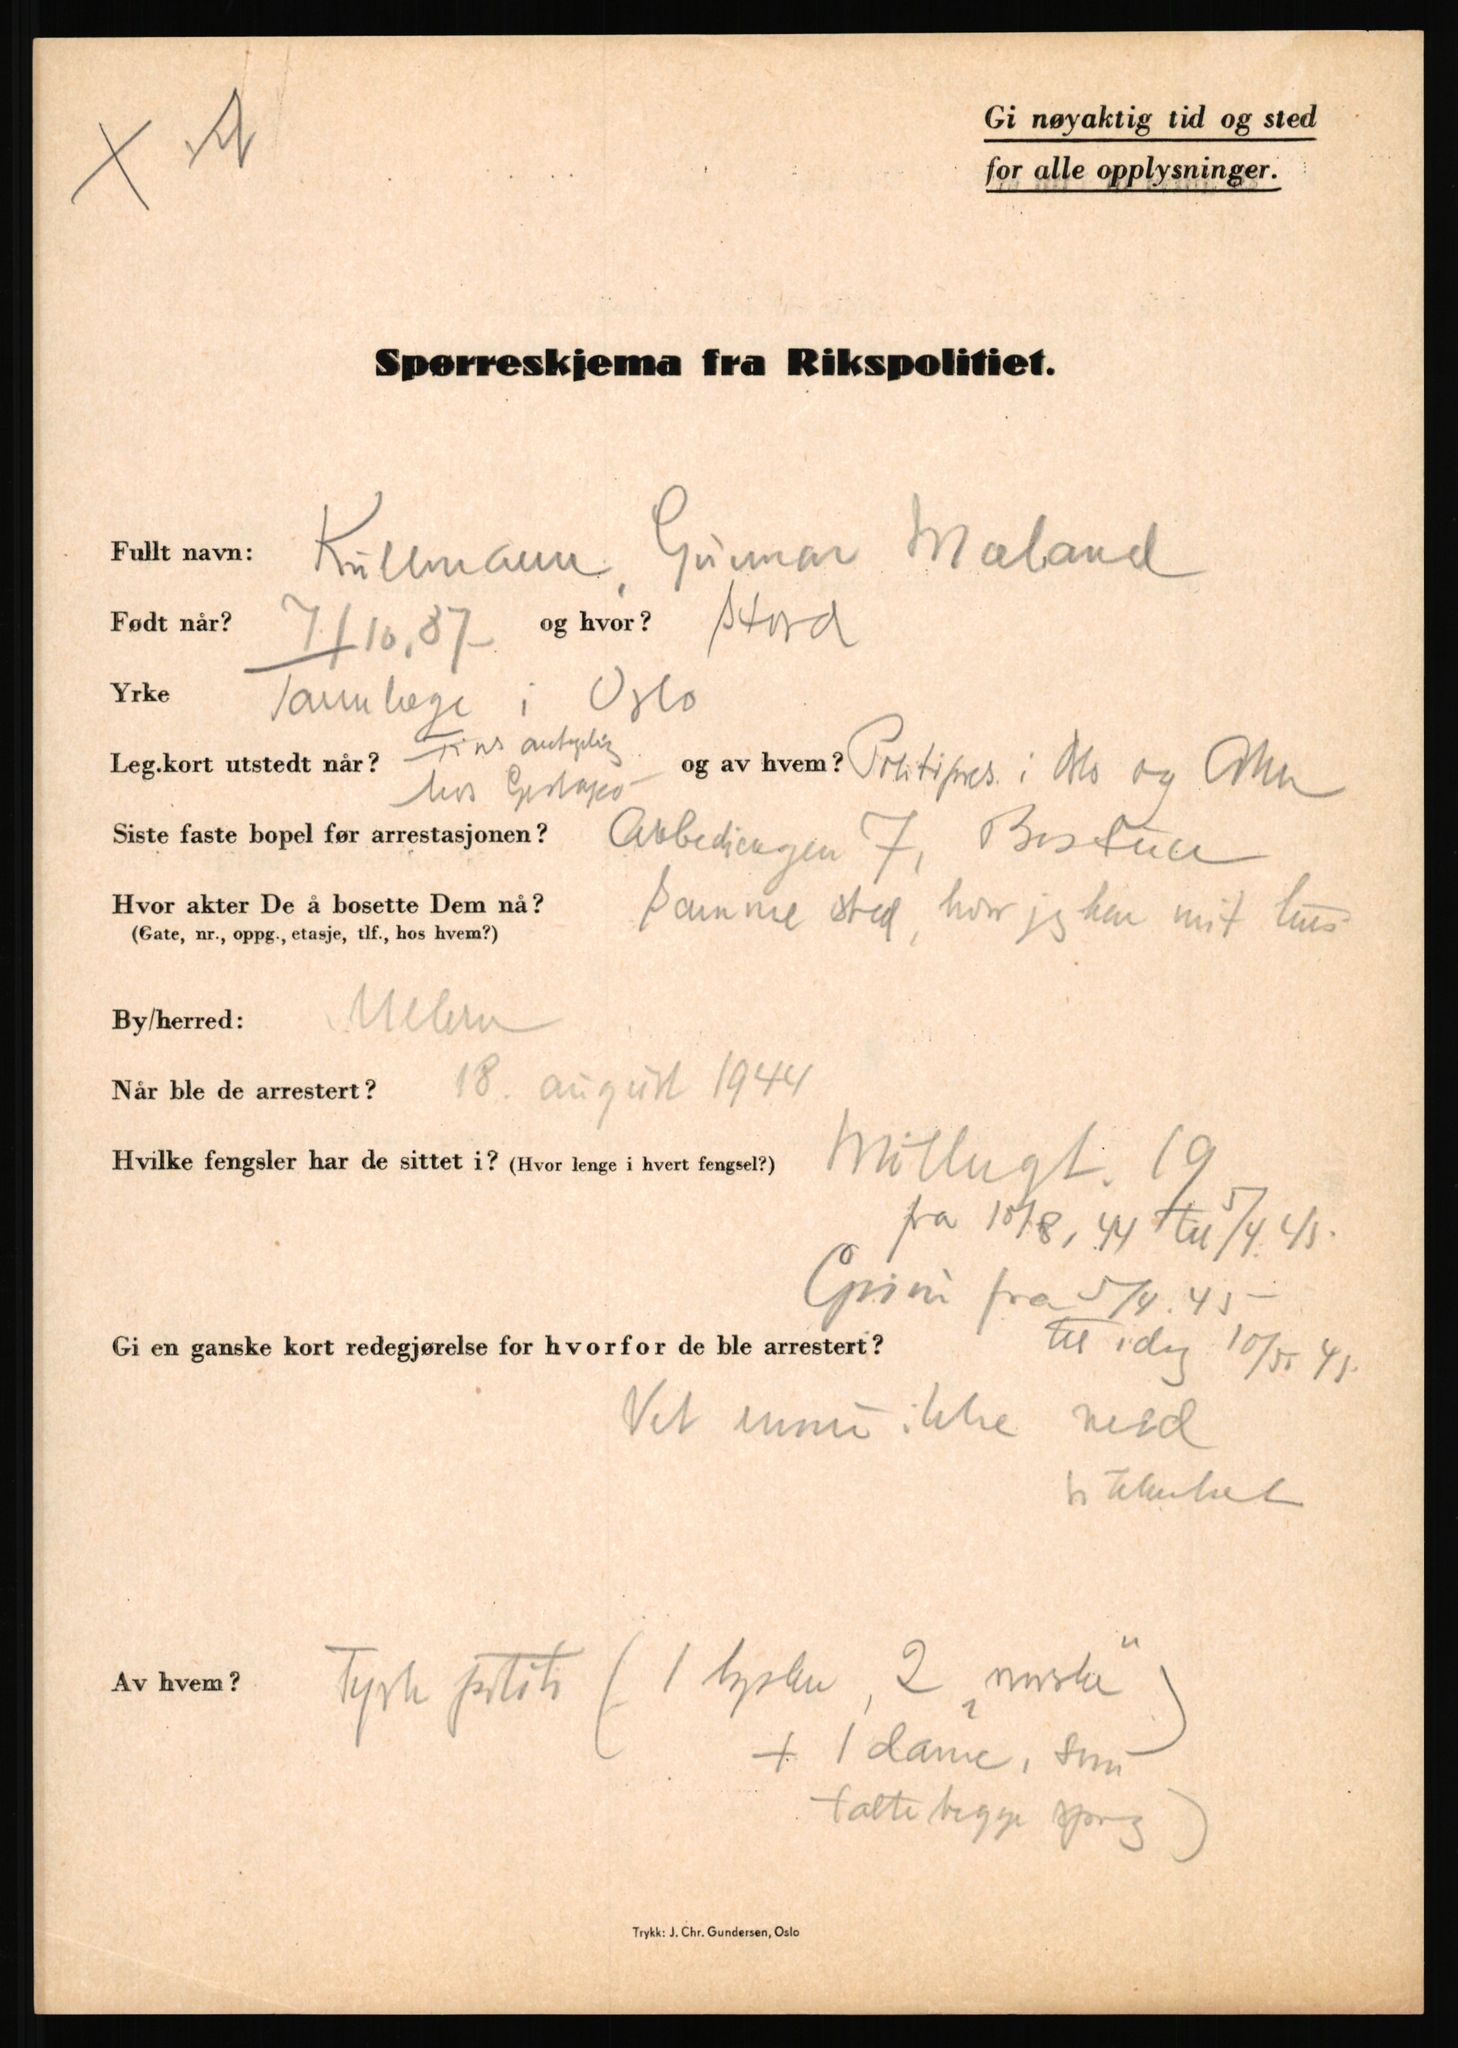 Gi nøyaktig tid og sted
for alle opplysninger.
Spørreskjema fra Rikspolitiet.
Fullt navn: Kullmann, Gunnar Mæland
Født når? 7/10,87 og hvor? Stord
Yrke Tannlæge i Oslo
Leg.kort utstedt når? Fins antagelig hos Gestapo og av hvem? Politipres. i Oslo og Aker
Siste faste bopel før arrestasjonen? Abbediengen 7, Bestun
Hvor akter De å bosette Dem nå? Samme sted, hvor jeg har mit hus
(Gate, nr., oppg., etasje, tlf., hos hvem?)
By/herred: Ullern
Når ble de arrestert? 18. august 1944
Hvilke fengsler har de sittet i? (Hvor lenge i hvert fengsel?) Møllergt. 19
fra 18/8, 44 til 5/4. 45.
Grini fra 5/4. 45
til idag 10/5 45.
Gi en ganske kort redegjørelse for hvorfor de ble arrestert?
Vet ennu ikke med
sikkerhet
Av hvem? Tysk politi (1 tysker, 2 „norske"
+ 1 dame, som
talte begge sprog)
Trykk: J. Chr. Gundersen, Oslo